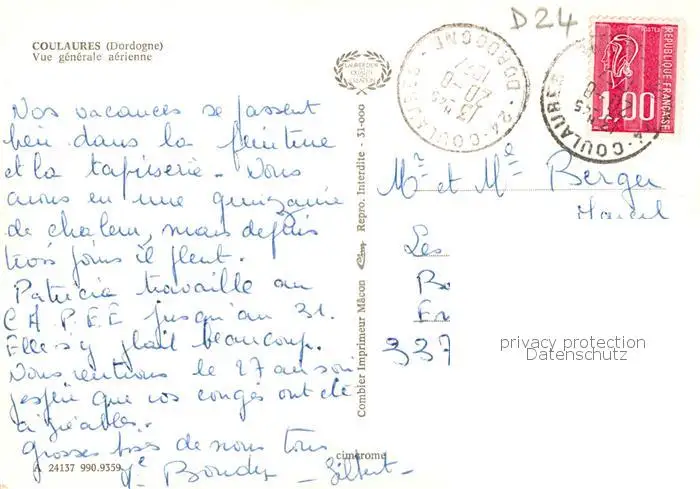 COULAURES (Dordogne)
Vue générale aérienne
D24
POSTES
REPUBLIQUE FRANÇAISE
1.00
24-COULAURES
DORDOGNE
24-COULAURES
Nos vacances se passent
bien dans la peinture
et la tapisserie - Nous
avons eu une quinzaine
de chaleur, mais depuis
trois jours il pleut.
Patricia travaille au
C A P E E jusqu'au 31.
Elle s'y plait beaucoup.
Nous rentrons le 27 au soir
j'espère que vos congés ont été
agréables.
Grosses bises de nous tous
Gilbert -
Mr et Me Berger
Marcel
Les
Bo
337
Combier Imprimeur Mâcon Cim Repro. Interdite - 31-000
cimcrome
A 24137 990.9359
privacy protection
Datenschutz